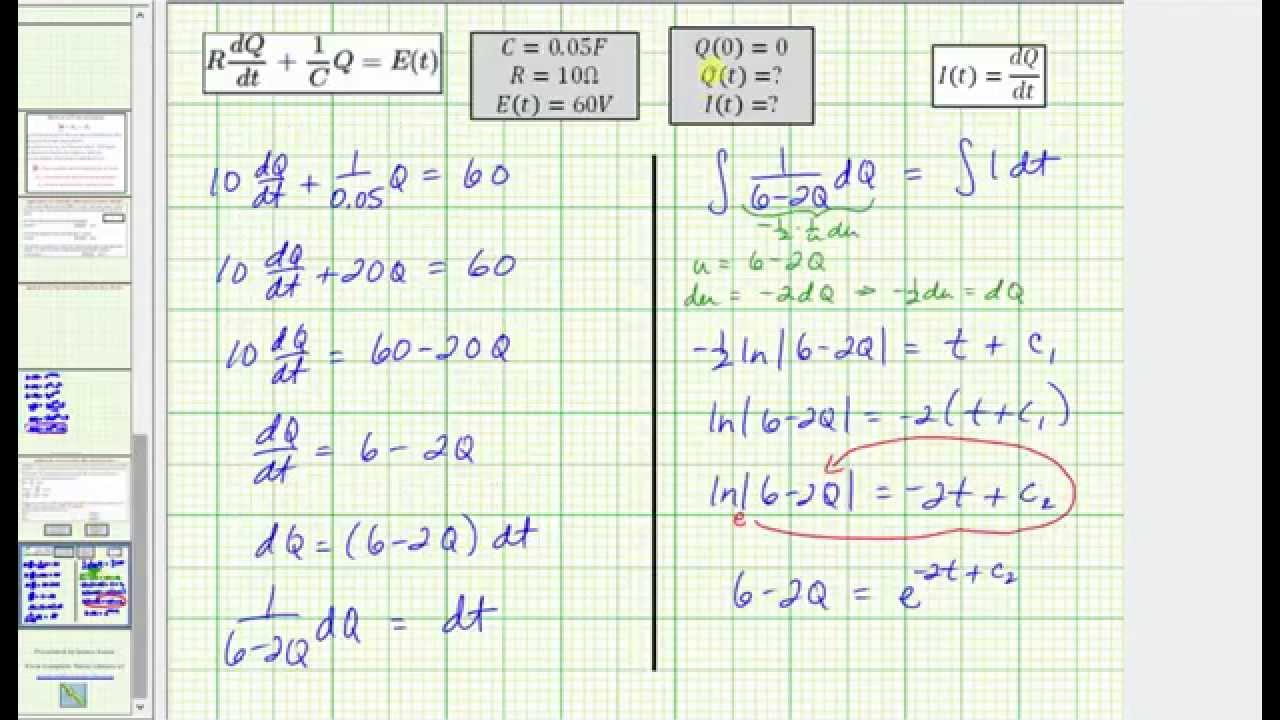 R dQ/dt + 1/C Q = E(t)
C = 0.05F
R = 10Ω
E(t) = 60V
Q(0) = 0
Q(t) =?
I(t) =?
I(t) = dQ/dt
10 dQ/dt + 1/0.05 Q = 60
10 dQ/dt + 20Q = 60
10 dQ/dt = 60 - 20Q
dQ/dt = 6 - 2Q
dQ = (6-2Q) dt
1/(6-2Q) dQ = dt
∫ 1/(6-2Q) dQ = ∫ 1 dt
-1/2 · 1/u du
u = 6-2Q
du = -2dQ → -1/2 du = dQ
-1/2 ln|6-2Q| = t + c₁
ln|6-2Q| = -2(t+c₁)
ln|6-2Q| = -2t + c₂
e
6-2Q = e^(-2t + c₂)